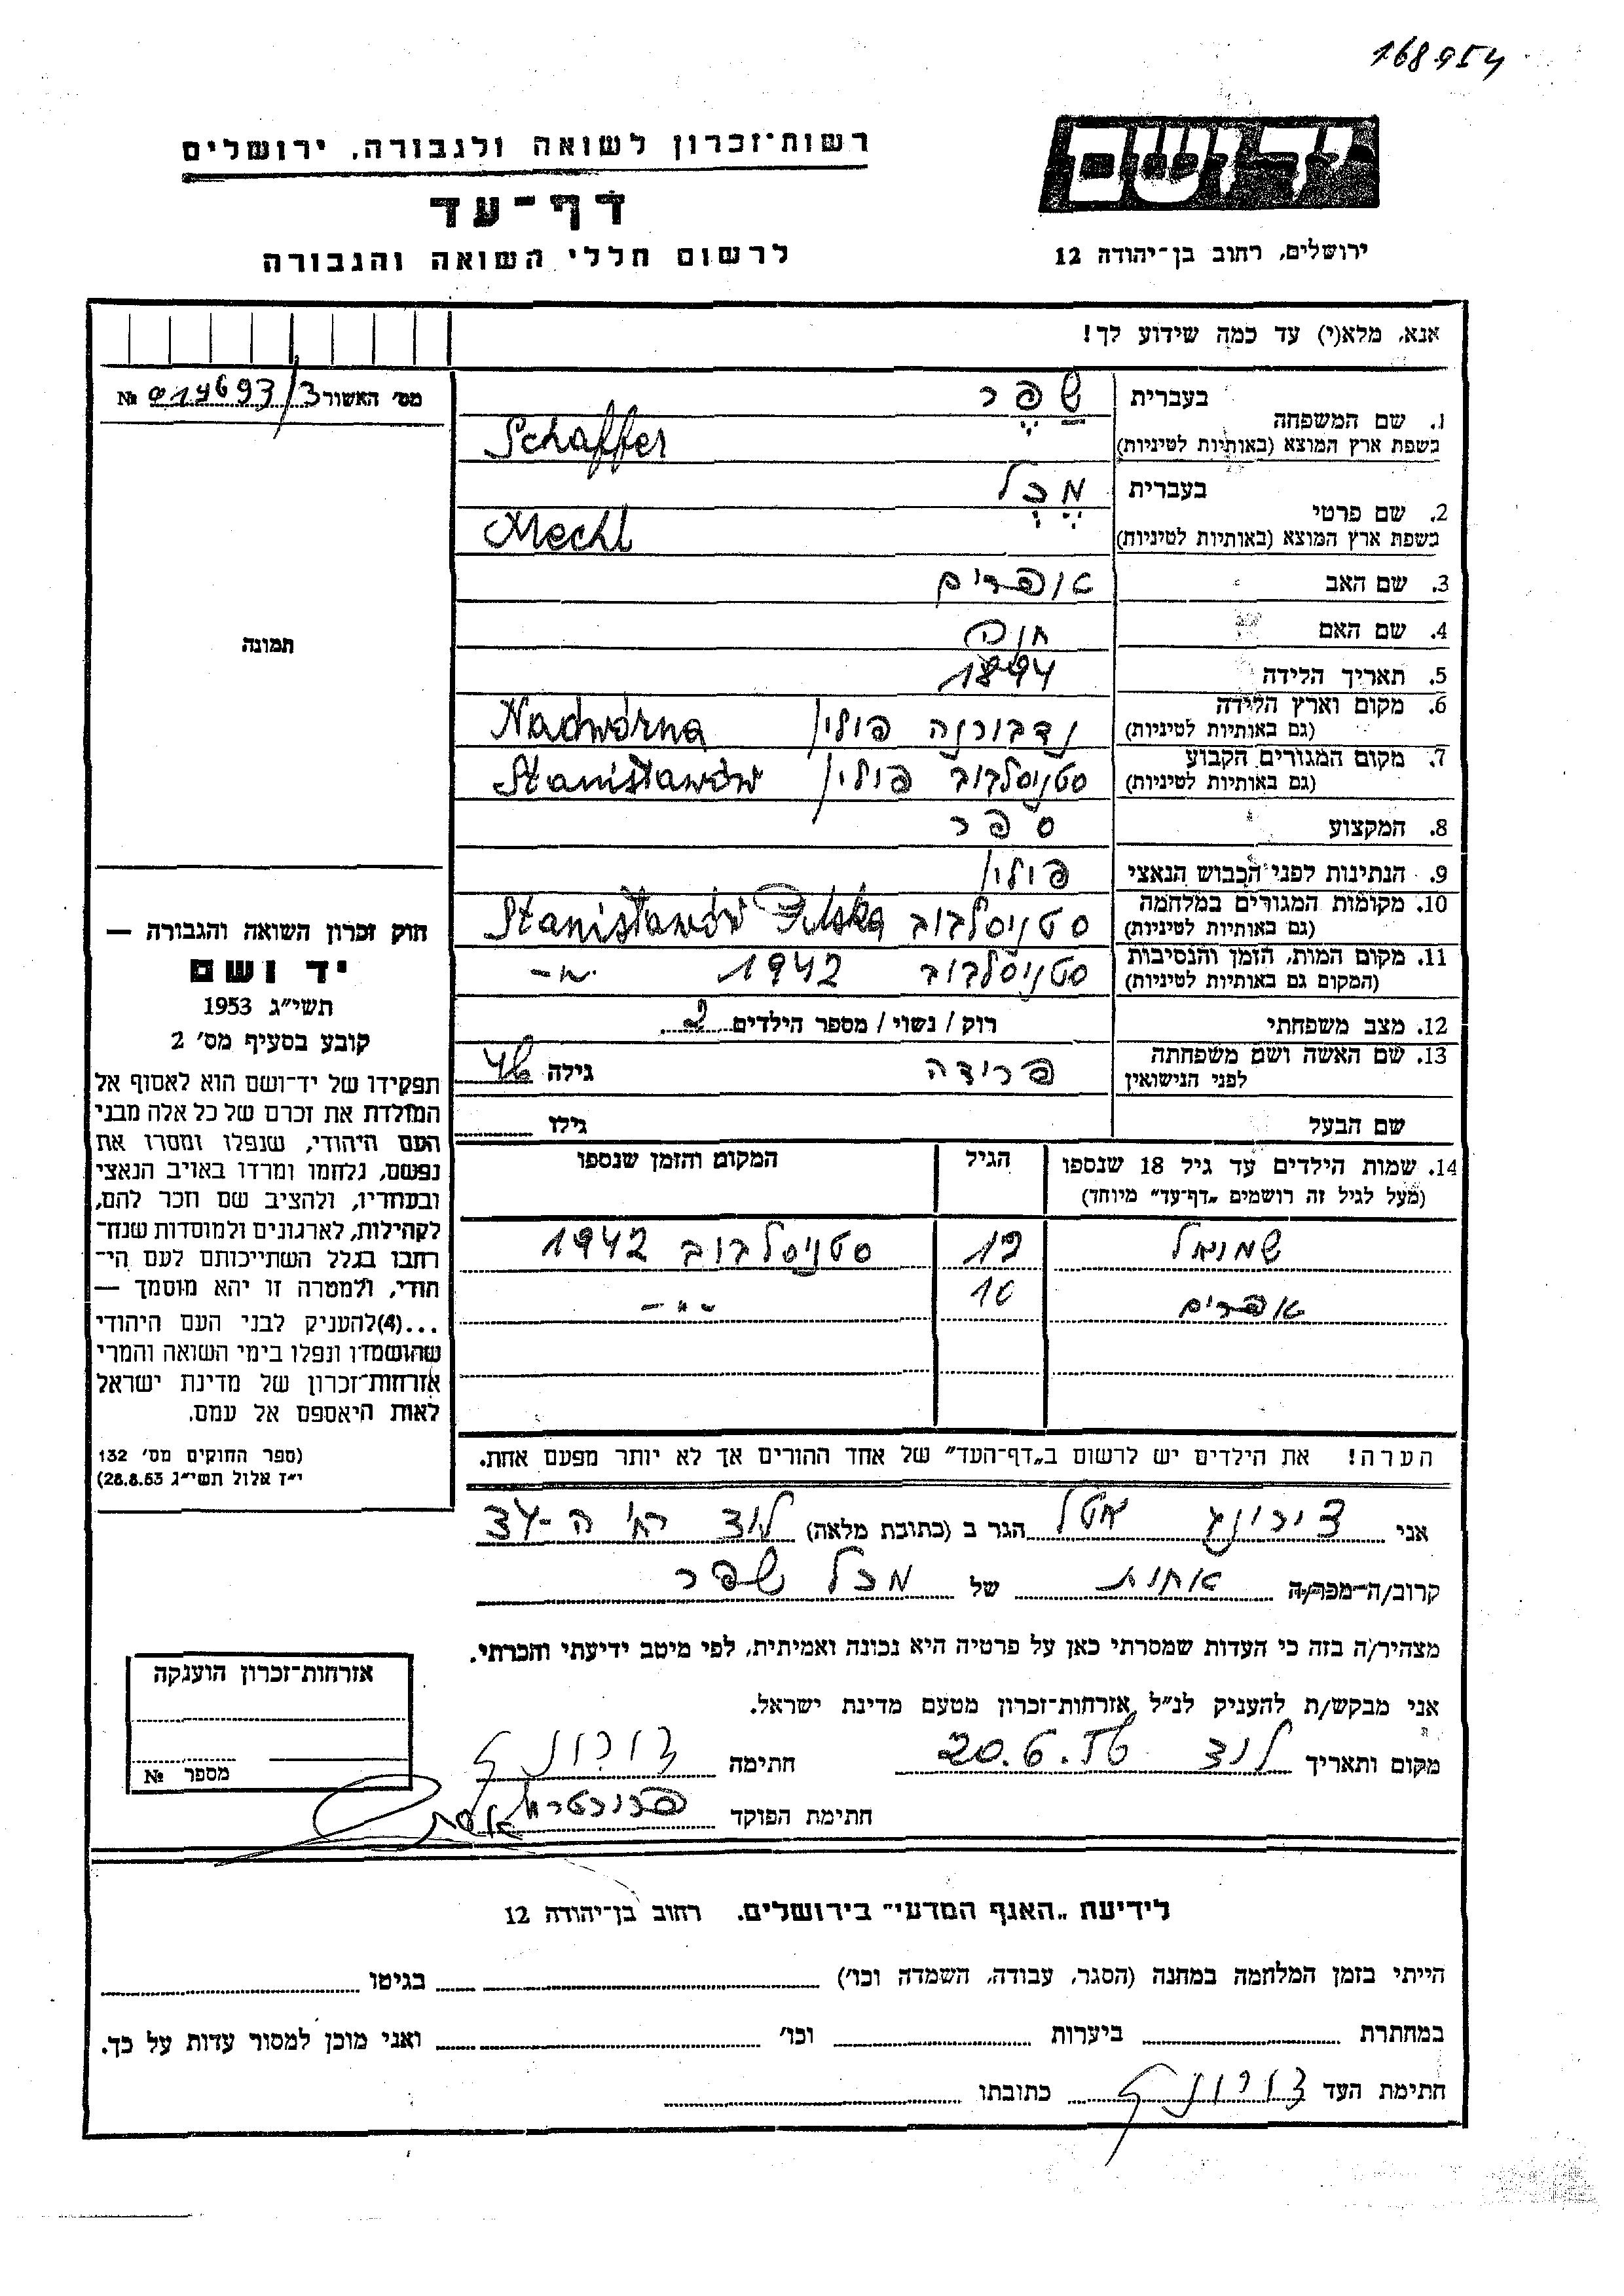 168954
יד ושם
רשות-זכרון לשואה ולגבורה, ירושלים
דף-עד
לרשום חללי השואה והגבורה
ירושלים, רחוב בן-יהודה 12
אנא, מלא(י) עד כמה שידוע לך!
מס׳ האשור 014693/3 №
1. שם המשפחה בעברית שפר
בשפת ארץ המוצא (באותיות לטיניות) Schaffer
2. שם פרטי בעברית מכל
בשפת ארץ המוצא (באותיות לטיניות) Mechl
3. שם האב אפרים
4. שם האם חוה
5. תאריך הלידה 1894
6. מקום וארץ הלידה (גם באותיות לטיניות) נדבורנה פולין Nadwórna
7. מקום המגורים הקבוע (גם באותיות לטיניות) סטניסלבוב פולין Stanisławów
8. המקצוע ספר
9. הנתינות לפני הכבוש הנאצי פולין
10. מקומות המגורים במלחמה (גם באותיות לטיניות) סטניסלבוב Stanisławów Polska
11. מקום המות, הזמן והנסיבות (המקום גם באותיות לטיניות) סטניסלבוב 1942 -"-
12. מצב משפחתי רוק / נשוי / מספר הילדים 2
13. שם האשה ושם משפחתה לפני הנישואין פרידה גילה 46
שם הבעל גילו
14. שמות הילדים עד גיל 18 שנספו (מעל לגיל זה רושמים „דף-עד״ מיוחד) הגיל המקום והזמן שנספו
שמואל 12 סטניסלבוב 1942
אפרים 10 -"-
הערה! את הילדים יש לרשום ב„דף-העד״ של אחד ההורים אך לא יותר מפעם אחת.
תמונה
חוק זכרון השואה והגבורה —
יד ושם
תשי״ג 1953
קובע בסעיף מס׳ 2
תפקידו של יד-ושם הוא לאסוף אל
המולדת את זכרם של כל אלה מבני
העם היהודי, שנפלו ומסרו את
נפשם, נלחמו ומרדו באויב הנאצי
ובעוזריו, ולהציב שם וזכר להם,
לקהילות, לארגונים ולמוסדות שנח-
רבו בגלל השתייכותם לעם הי-
הודי, ולמטרה זו יהא מוסמך —
...(4)להעניק לבני העם היהודי
שהושמדו ונפלו בימי השואה והמרי
אזרחות-זכרון של מדינת ישראל
לאות היאספם אל עמם.
(ספר החוקים מס׳ 132
י״ז אלול תשי״ג 28.8.53)
אני צירונג אטל הגר ב (כתובת מלאה) לוד רח׳ ה-34
קרוב/ה-מכר/ה אחות של מכל שפר
מצהיר/ה בזה כי העדות שמסרתי כאן על פרטיה היא נכונה ואמיתית, לפי מיטב ידיעתי והכרתי.
אני מבקש/ת להעניק לנ״ל אזרחות-זכרון מטעם מדינת ישראל.
מקום ותאריך לוד 20.6.56 חתימה
חתימת הפוקד
אזרחות-זכרון הוענקה
מספר №
לידיעת „האגף המדעי״ בירושלים. רחוב בן-יהודה 12
הייתי בזמן המלחמה במחנה (הסגר, עבודה, השמדה וכו׳) בגיטו
במחתרת ביערות וכו׳ ואני מוכן למסור עדות על כך.
חתימת העד כתובתו